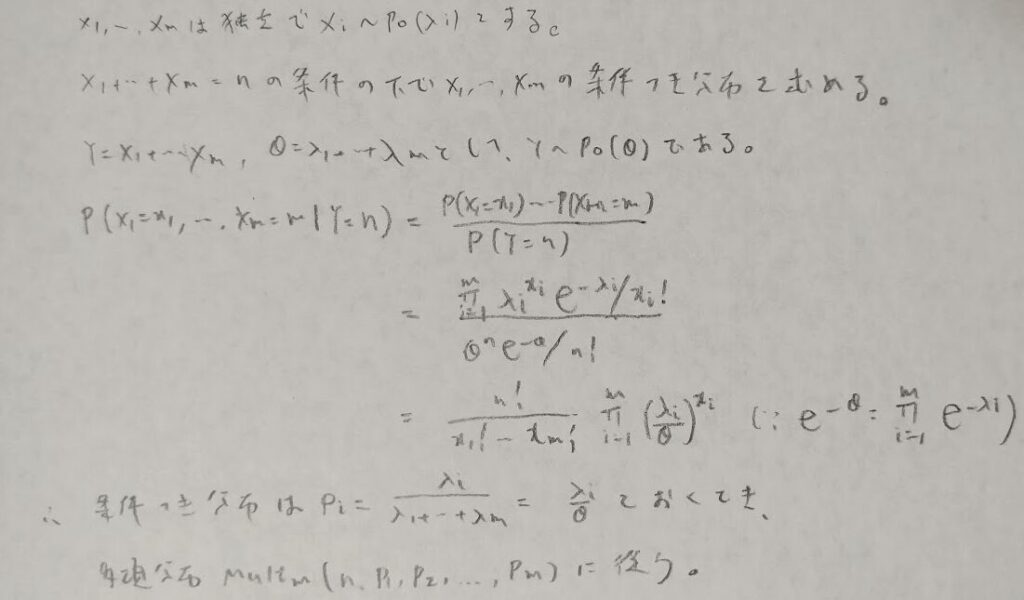 X₁, …, Xm は 独立で Xi ~ Po(λi) とする。
X₁+…+Xm = n の条件の下で X₁, …, Xm の条件つき分布を求める。
Y = X₁+…Xm, θ = λ₁+…+λm として、Y ~ Po(θ) である。
P(X₁=x₁, …, Xm=m | Y=n) = P(X₁=x₁)…P(Xm=m) / P(Y=n)
= ∏_{i=1}^{m} λi^{xi} e^{-λi}/xi! / θ^n e^{-θ}/n!
= n!/(x₁!…xm!) ∏_{i=1}^{m} (λi/θ)^{xi} (∵ e^{-θ} = ∏_{i=1}^{m} e^{-λi})
∴ 条件つき分布は Pi = λi/(λ₁+…+λm) = λi/θ とおくとき、
多項分布 Multm(n, P₁, P₂, …, Pm) に従う。